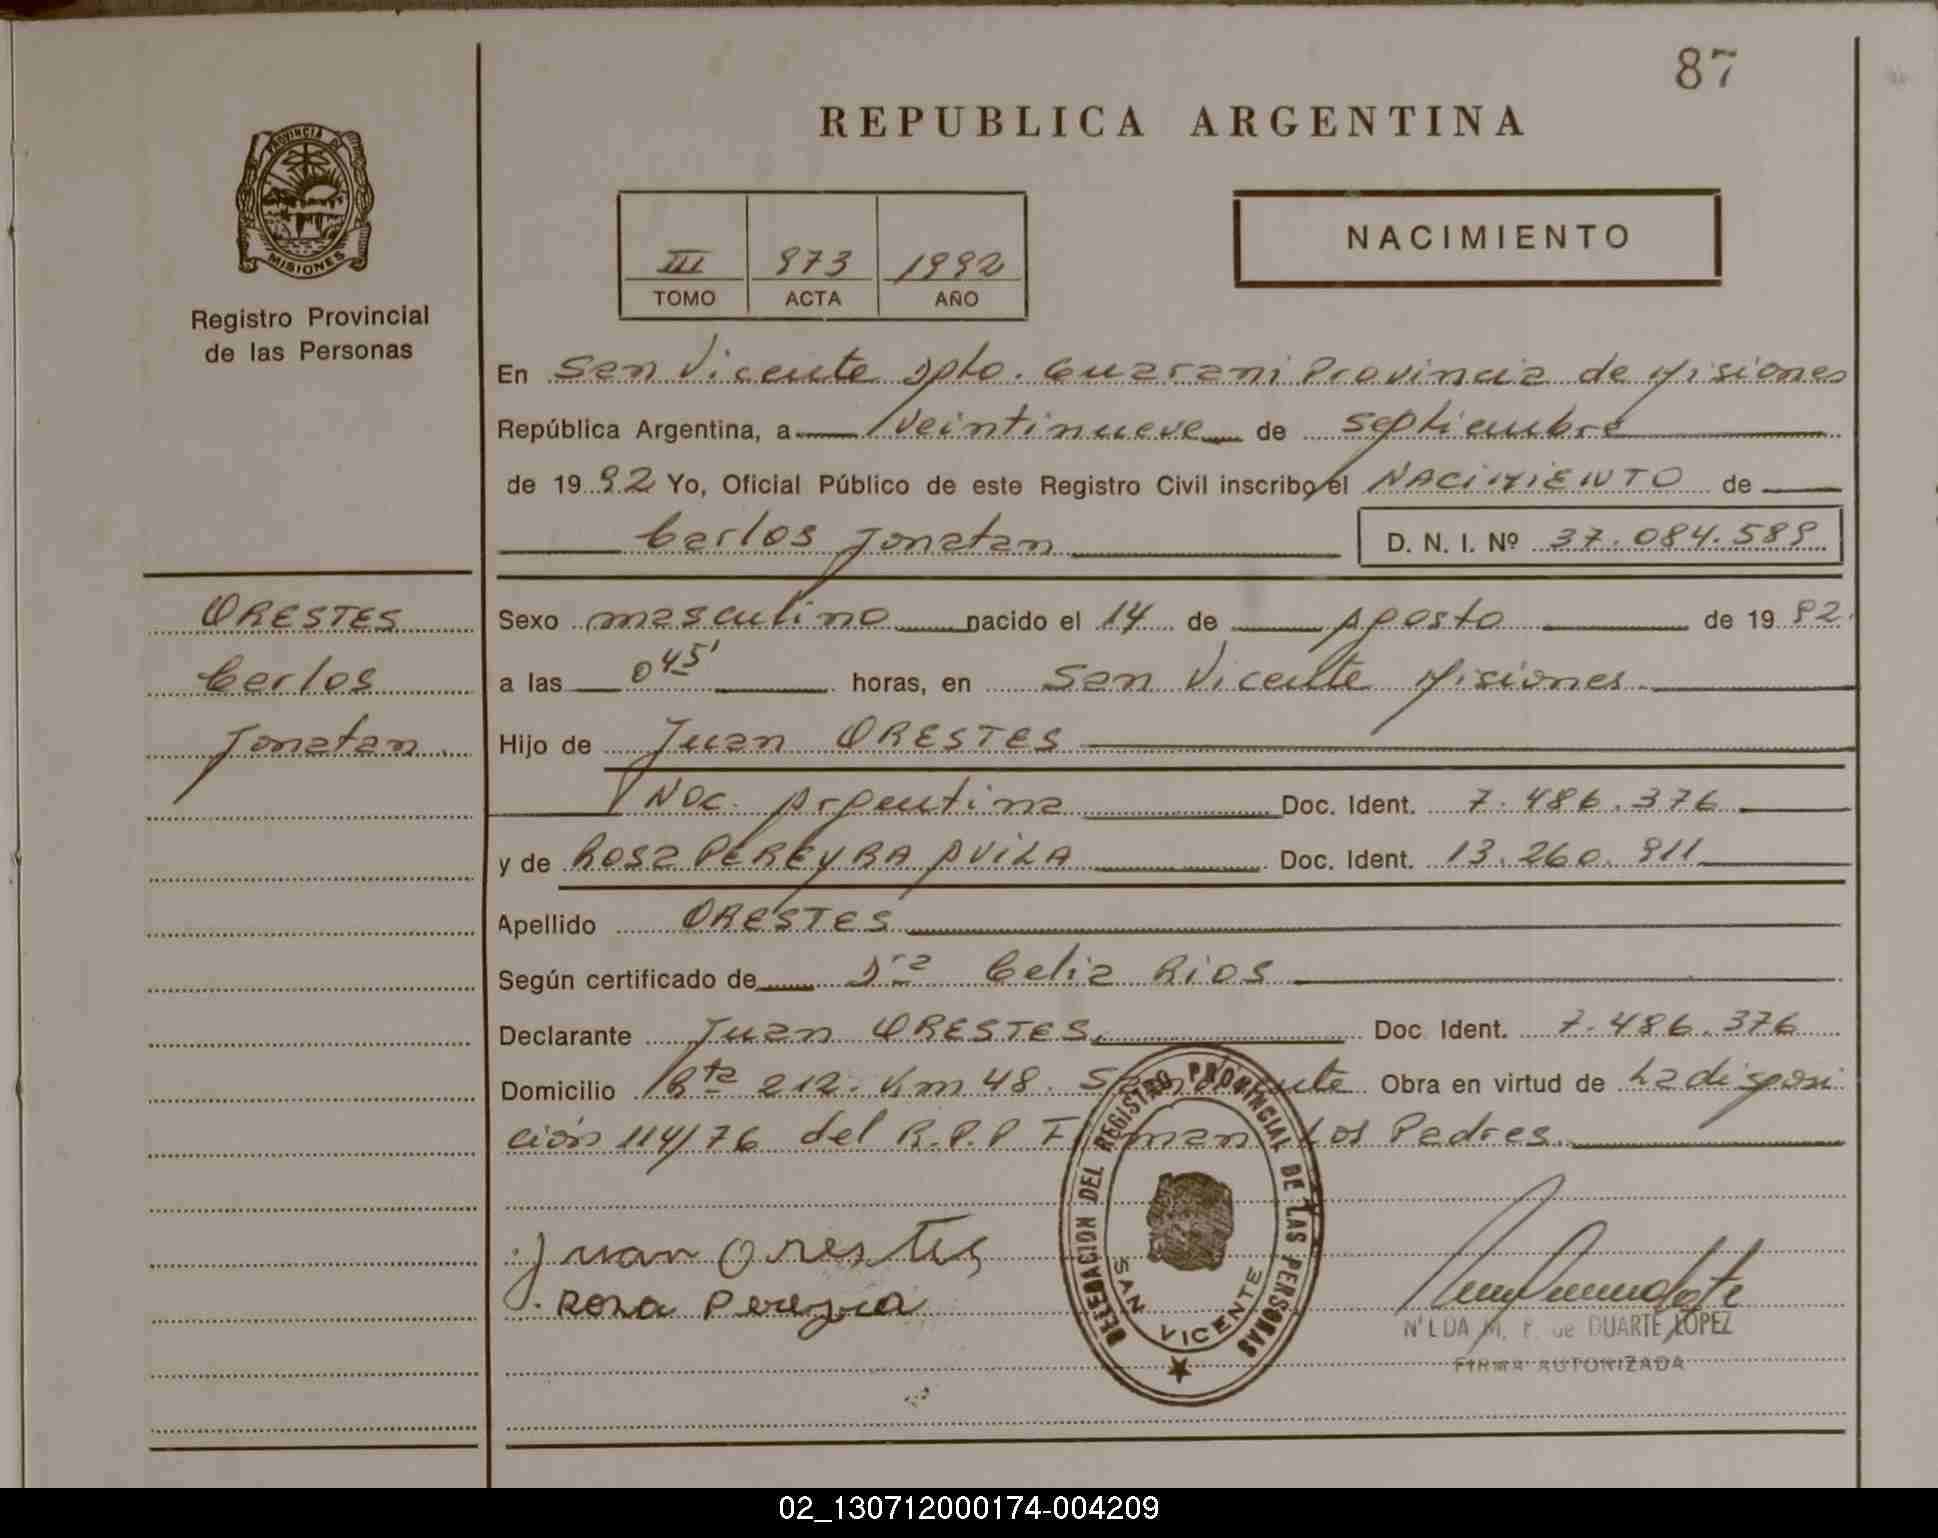 87
REPUBLICA ARGENTINA
PROVINCIA DE
MISIONES
Registro Provincial
de las Personas
III 973 1992
TOMO ACTA AÑO
NACIMIENTO
En San Vicente Dpto. Guarani Provincia de Misiones
República Argentina, a veintinueve de septiembre
de 1992 Yo, Oficial Público de este Registro Civil inscribo el NACIMIENTO de
Carlos Jonatan D. N. I. Nº 37.084.589
ORESTES
Carlos
Jonatan.
Sexo masculino nacido el 14 de Agosto de 1992.
a las 0 45' horas, en San Vicente Misiones.
Hijo de Juan ORESTES
Nac. Argentina Doc. Ident. 7.486.376
y de Rosa PEREYRA AVILA Doc. Ident. 13.260.911
Apellido ORESTES
Según certificado de Dra Celia Rios
Declarante Juan ORESTES. Doc. Ident. 7.486.376
Domicilio Rta 212. Km 48. San Vicente Obra en virtud de La disposi
ción 114/76 del R.P.P Firman Los Padres.
Juan Orestes
Rosa Pereyra
DELEGACION DEL REGISTRO PROVINCIAL DE LAS PERSONAS
SAN VICENTE
NILDA M. F. de DUARTE LOPEZ
FIRMA AUTORIZADA
02_130712000174-004209